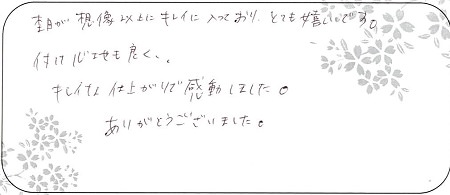 杢目が想像以上にキレイに入っており、とても嬉しいです。
付け心地も良く、、
キレイな仕上がりで感動しました。
ありがとうございました。